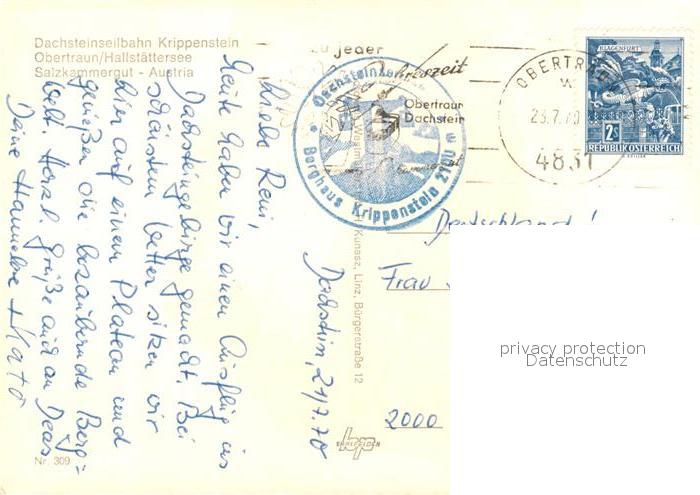 Dachsteinseilbahn Krippenstein
Obertraun/Hallstättersee
Salzkammergut - Austria
Liebe Reni,
heute haben wir einen Ausflug ins
Dachsteingebirge gemacht. Bei
schönstem Wetter sitzen wir
hier auf einem Plateau und
grüßen die bezaubernde Berg=
welt. Herzl. Grüße auch an
Deine Hannelore + Kato
Dachstein, 21.7.70
Nr. 309
Kunasz, Linz, Bürgerstraße 12
zu jeder
Jahreszeit
Obertraun
Dachstein
Berghaus Krippenstein 2100 m
OBERTRAUN
23.7.70
4831
KLAGENFURT
2S
REPUBLIK ÖSTERREICH
Deutschland!
Frau
2000
privacy protection
Datenschutz